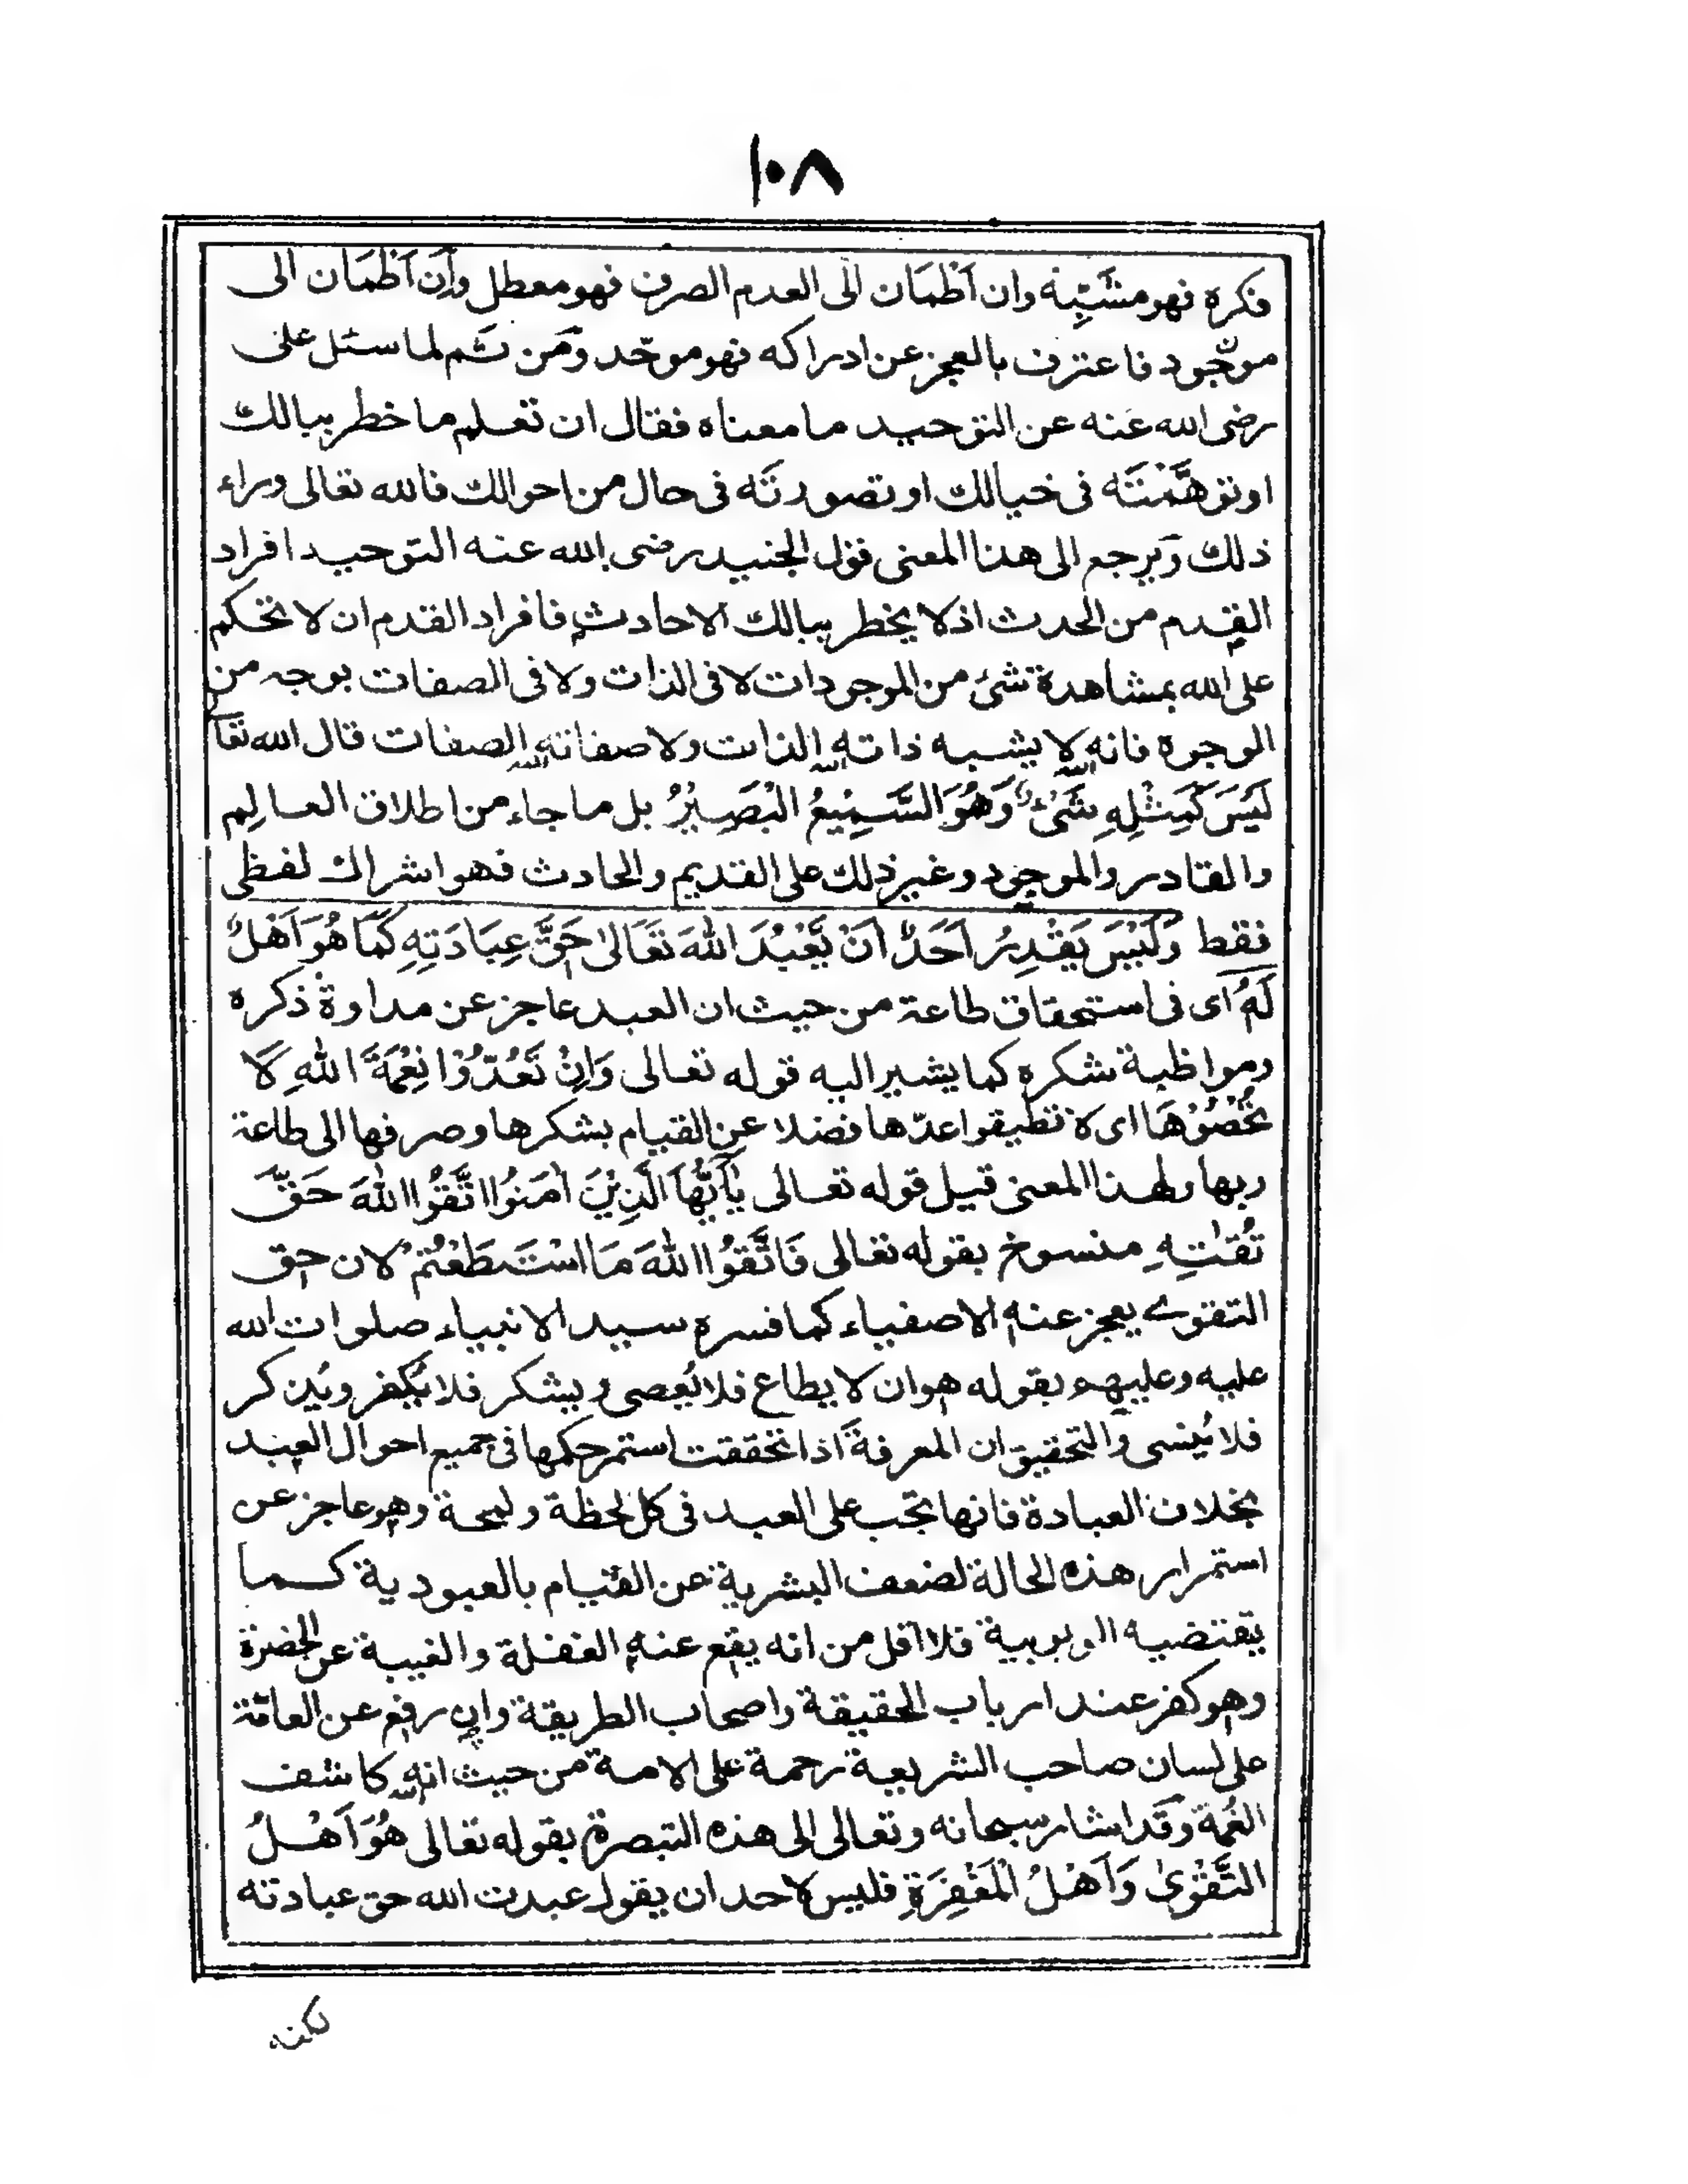 ١٠٨
فكره فهو مشبّهة وان اَظمَان الى العدم الصرف فهو معطل وان اَظمَان الى
موجود فاعترف بالعجز عن ادراكه فهو موحّد ومن ثم لما سئل على
رضى الله عنه عن التوحيد ما معناه فقال ان تعلم ما خطر ببالك
او توهَّمْتَه فى خيالك او تصورتَه فى حال من احوالك فالله تعالى وراء
ذلك ويرجع الى هذا المعنى قول الجنيد رضى الله عنه التوحيد افراد
القدم من الحدث اذ لا يخطر ببالك الا حادث فافراد القدم ان لا تحكم
على الله بمشاهدة شئ من الموجودات لا فى الذات ولا فى الصفات بوجه من
الوجوه فانه لا يشبه ذاته الذات ولا صفاته الصفات قال الله تعا
لَيْسَ كَمِثْلِهِ شَىْءٌ وَهُوَ السَّمِيْعُ الْبَصِيْرُ بل ما جاء من اطلاق العالِم
والقادر والموجود وغير ذلك على القديم والحادث فهو اشراك لفظى
فقط وَلَيْسَ يَقْدِرُ اَحَدٌ اَنْ يَّعْبُدَ اللهَ تَعَالىٰ حَقَّ عِبَادَتِهِ كَمَا هُوَ اَهْلٌ
لَهُ اى فى استحقاق طاعة من حيث ان العبد عاجز عن مداوة ذكره
ومواظبة شكره كما يشير اليه قوله تعالى وَاِنْ تَعُدُّوْا نِعْمَةَ اللهِ لَا
تُحْصُوْهَا اى لا تطيقوا عدّها فضلا عن القيام بشكرها وصرفها الى طاعة
ربها ولهذا المعنى قيل قوله تعالى يٰٓاَيُّهَا الَّذِيْنَ اٰمَنُوا اتَّقُوا اللهَ حَقَّ
تُقٰتِهِ منسوخ بقوله تعالى فَاتَّقُوا اللهَ مَا اسْتَطَعْتُمْ لان حق
التقوے يعجز عنه الاصفياء كما فسره سيد الانبياء صلوات الله
عليه وعليهم بقوله هو ان لا يطاع فلا يُعصى ويشكر فلا يُكفر ويُذكر
فلا يُنسى والتحقيق ان المعرفة اذا تحققت استمر حكمها فى جميع احوال العبد
بخلاف العبادة فانها تجب على العبد فى كل لحظة ولمحة وهو عاجز عن
استمرار هذه الحالة لضعف البشرية عن القيام بالعبودية كما
يقتضيه الوبوبية فلا اقل من انه يقع عنه الغفلة والغيبة عن الحضرة
وهو كفر عند ارباب الحقيقة واصحاب الطريقة وان رفع عن العامّة
على لسان صاحب الشريعة رحمة على الامة من حيث انه كاشف
الغُمة وقد اشار سبحانه وتعالى الى هذه التبصرة بقوله تعالى هُوَ اَهْلُ
التَّقْوٰى وَاَهْلُ الْمَغْفِرَةِ فليس لاحد ان يقول عبدت الله حق عبادته
لكنه